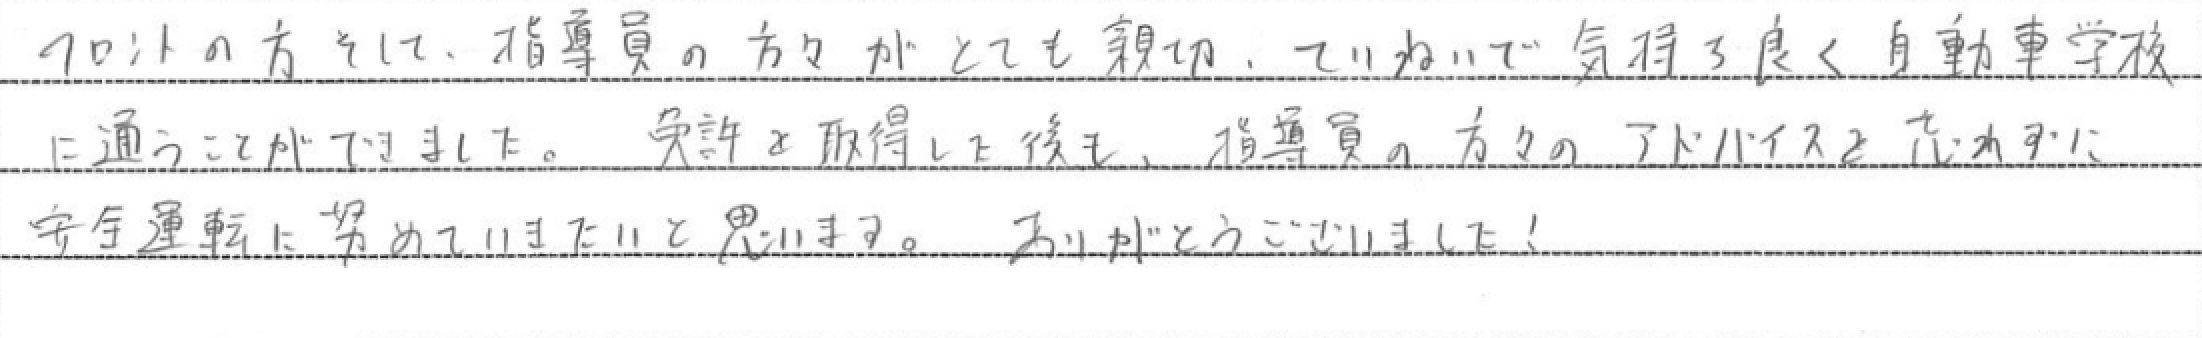 フロントの方そして、指導員の方々がとても親切、ていねいで気持ち良く自動車学校
に通うことができました。 免許を取得した後も、指導員の方々のアドバイスを忘れずに
安全運転に努めていきたいと思います。 ありがとうございました!